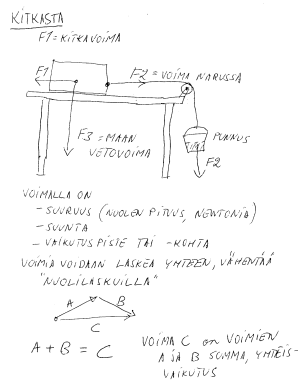 KITKASTA
F1 = KITKAVOIMA
F1
F2 = VOIMA NARUSSA
F3 = MAAN
VETOVOIMA
PUNNUS
F2
VOIMALLA ON
- SUURUUS (NUOLEN PITUUS, NEWTONIA)
- SUUNTA
- VAIKUTUSPISTE TAI -KOHTA
VOIMIA VOIDAAN LASKEA YHTEEN, VÄHENTÄÄ
"NUOLILASKUILLA"
A
B
C
A + B = C
VOIMA C on VOIMIEN
A JA B SUMMA, YHTEIS-
VAIKUTUS